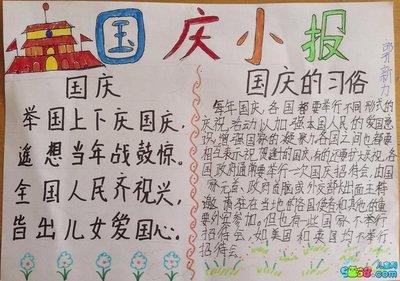 国庆小报
国庆
举国上下庆国庆,
遥想当年战鼓惊。
全国人民齐祝兴,
皆出儿女爱国心。
国庆的习俗
每年国庆,各国都要举行不同形式的
庆祝活动以加强本国人民的爱国意
识,增强国家的凝聚力各国之间也都要
相互表示祝贺逢十的国庆,有的还要扩大庆祝,各
国政府通常要举行一次国庆招待会,由国
家元首、政府首脑或外交部长出面主持
邀请驻在当地的各国使者和其他的重
要外宾参加。但也有一些国家不举行
招待会,如美国和英国均不举行
招待会